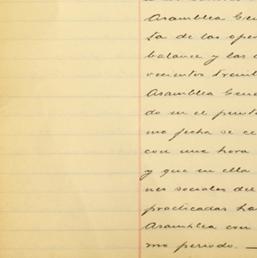 Asamblea Gene
ta de las ope
balance y las
cientos trein
Asamblea Gene
do en el punto
ma fecha se ce
con una hora
y que en ella
nes sociales del
practicadas ha
Asamblea con
mo periodo. —